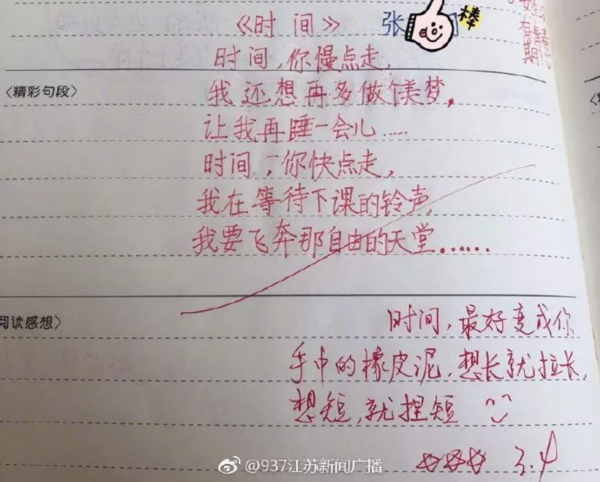 《时间》 张
时间，你慢点走，
〈精彩句段〉
我还想再多做个美梦，
让我再睡一会儿……
时间，你快点走，
我在等待下课的铃声，
我要飞奔那自由的天堂……
阅读感想〉
时间，最好变成你
手中的橡皮泥，想长就拉长，
想短，就捏短
3.4
棒
@937江苏新闻广播